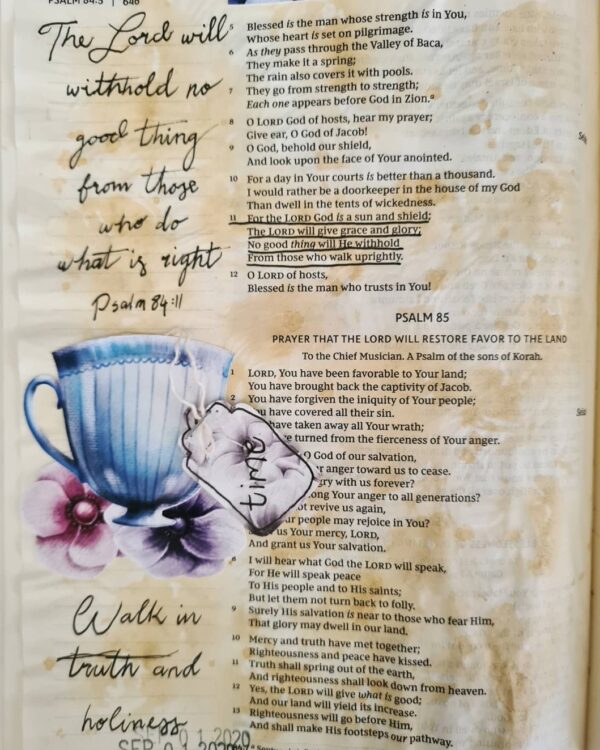 PSALM 84:5 | 646
The Lord will
withhold no
good thing
from those
who do
what is right
Psalm 84:11
5 Blessed is the man whose strength is in You,
Whose heart is set on pilgrimage.
6 As they pass through the Valley of Baca,
They make it a spring;
The rain also covers it with pools.
7 They go from strength to strength;
Each one appears before God in Zion.a
8 O LORD God of hosts, hear my prayer;
Give ear, O God of Jacob!
9 O God, behold our shield,
And look upon the face of Your anointed.
10 For a day in Your courts is better than a thousand.
I would rather be a doorkeeper in the house of my God
Than dwell in the tents of wickedness.
11 For the LORD God is a sun and shield;
The LORD will give grace and glory;
No good thing will He withhold
From those who walk uprightly.
12 O LORD of hosts,
Blessed is the man who trusts in You!
PSALM 85
PRAYER THAT THE LORD WILL RESTORE FAVOR TO THE LAND
To the Chief Musician. A Psalm of the sons of Korah.
1 LORD, You have been favorable to Your land;
You have brought back the captivity of Jacob.
2 You have forgiven the iniquity of Your people;
You have covered all their sin.
have taken away all Your wrath;
turned from the fierceness of Your anger.
O God of our salvation,
anger toward us to cease.
with us forever?
Your anger to all generations?
revive us again,
people may rejoice in You?
us Your mercy, LORD,
And grant us Your salvation.
8 I will hear what God the LORD will speak,
For He will speak peace
To His people and to His saints;
But let them not turn back to folly.
9 Surely His salvation is near to those who fear Him,
That glory may dwell in our land.
10 Mercy and truth have met together;
Righteousness and peace have kissed.
11 Truth shall spring out of the earth,
And righteousness shall look down from heaven.
12 Yes, the LORD will give what is good;
And our land will yield its increase.
13 Righteousness will go before Him,
And shall make His footsteps our pathway.
Walk in
truth and
holiness
SEP 01 2020